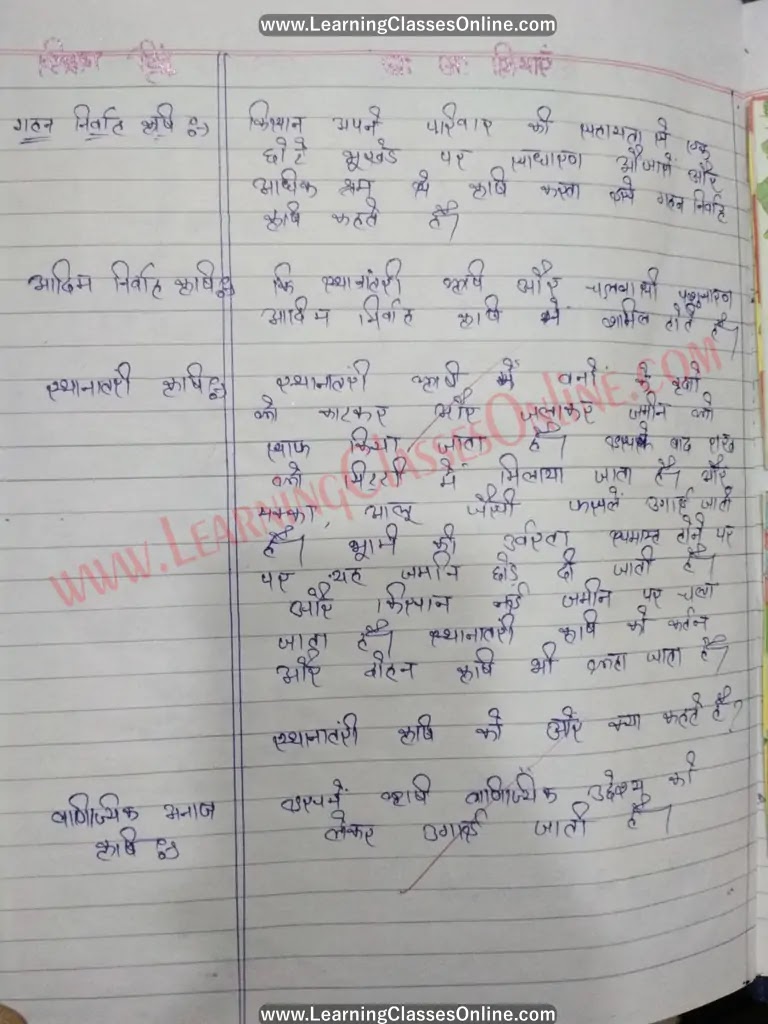 www.LearningClassesOnline.com
शिक्षण बिंदु छा० अ० क्रियाएं
गहन निर्वाह कृषि :- किसान अपने परिवार की सहायता से एक
छोटे भूखंड पर साधारण औजारों और
अधिक श्रम से कृषि करता उसे गहन निर्वाह
कृषि कहते हैं।
आदिम निर्वाह कृषि :- कि स्थानातंरी कृषि और चलवासी पशुचारण
आदिम निर्वाह कृषि में शामिल होते हैं।
स्थानातंरी कृषि :- स्थानातंरी कृषि में वनों के वृक्षों
को काटकर और जलाकर जमीन को
साफ किया जाता है। उसके बाद राख
को मिट्टी में मिलाया जाता है। और
मक्का, आलू जैसी फसलें उगाई जाती
है। भूमि की उर्वरता समाप्त होने पर
पर यह जमीन छोड़ दी जाती है।
और किसान नई जमीन पर चला
जाता है। स्थानातंरी कृषि को कर्तन
और दोहन कृषि भी कहा जाता है।
स्थानातंरी कृषि को और क्या कहते हैं?
वाणिज्यिक अनाज कृषि :- इसमें कृषि वाणिज्यिक उद्देश्य को
लेकर उगाई जाती है।
www.LearningClassesOnline.com
www.LearningClassesOnline.com